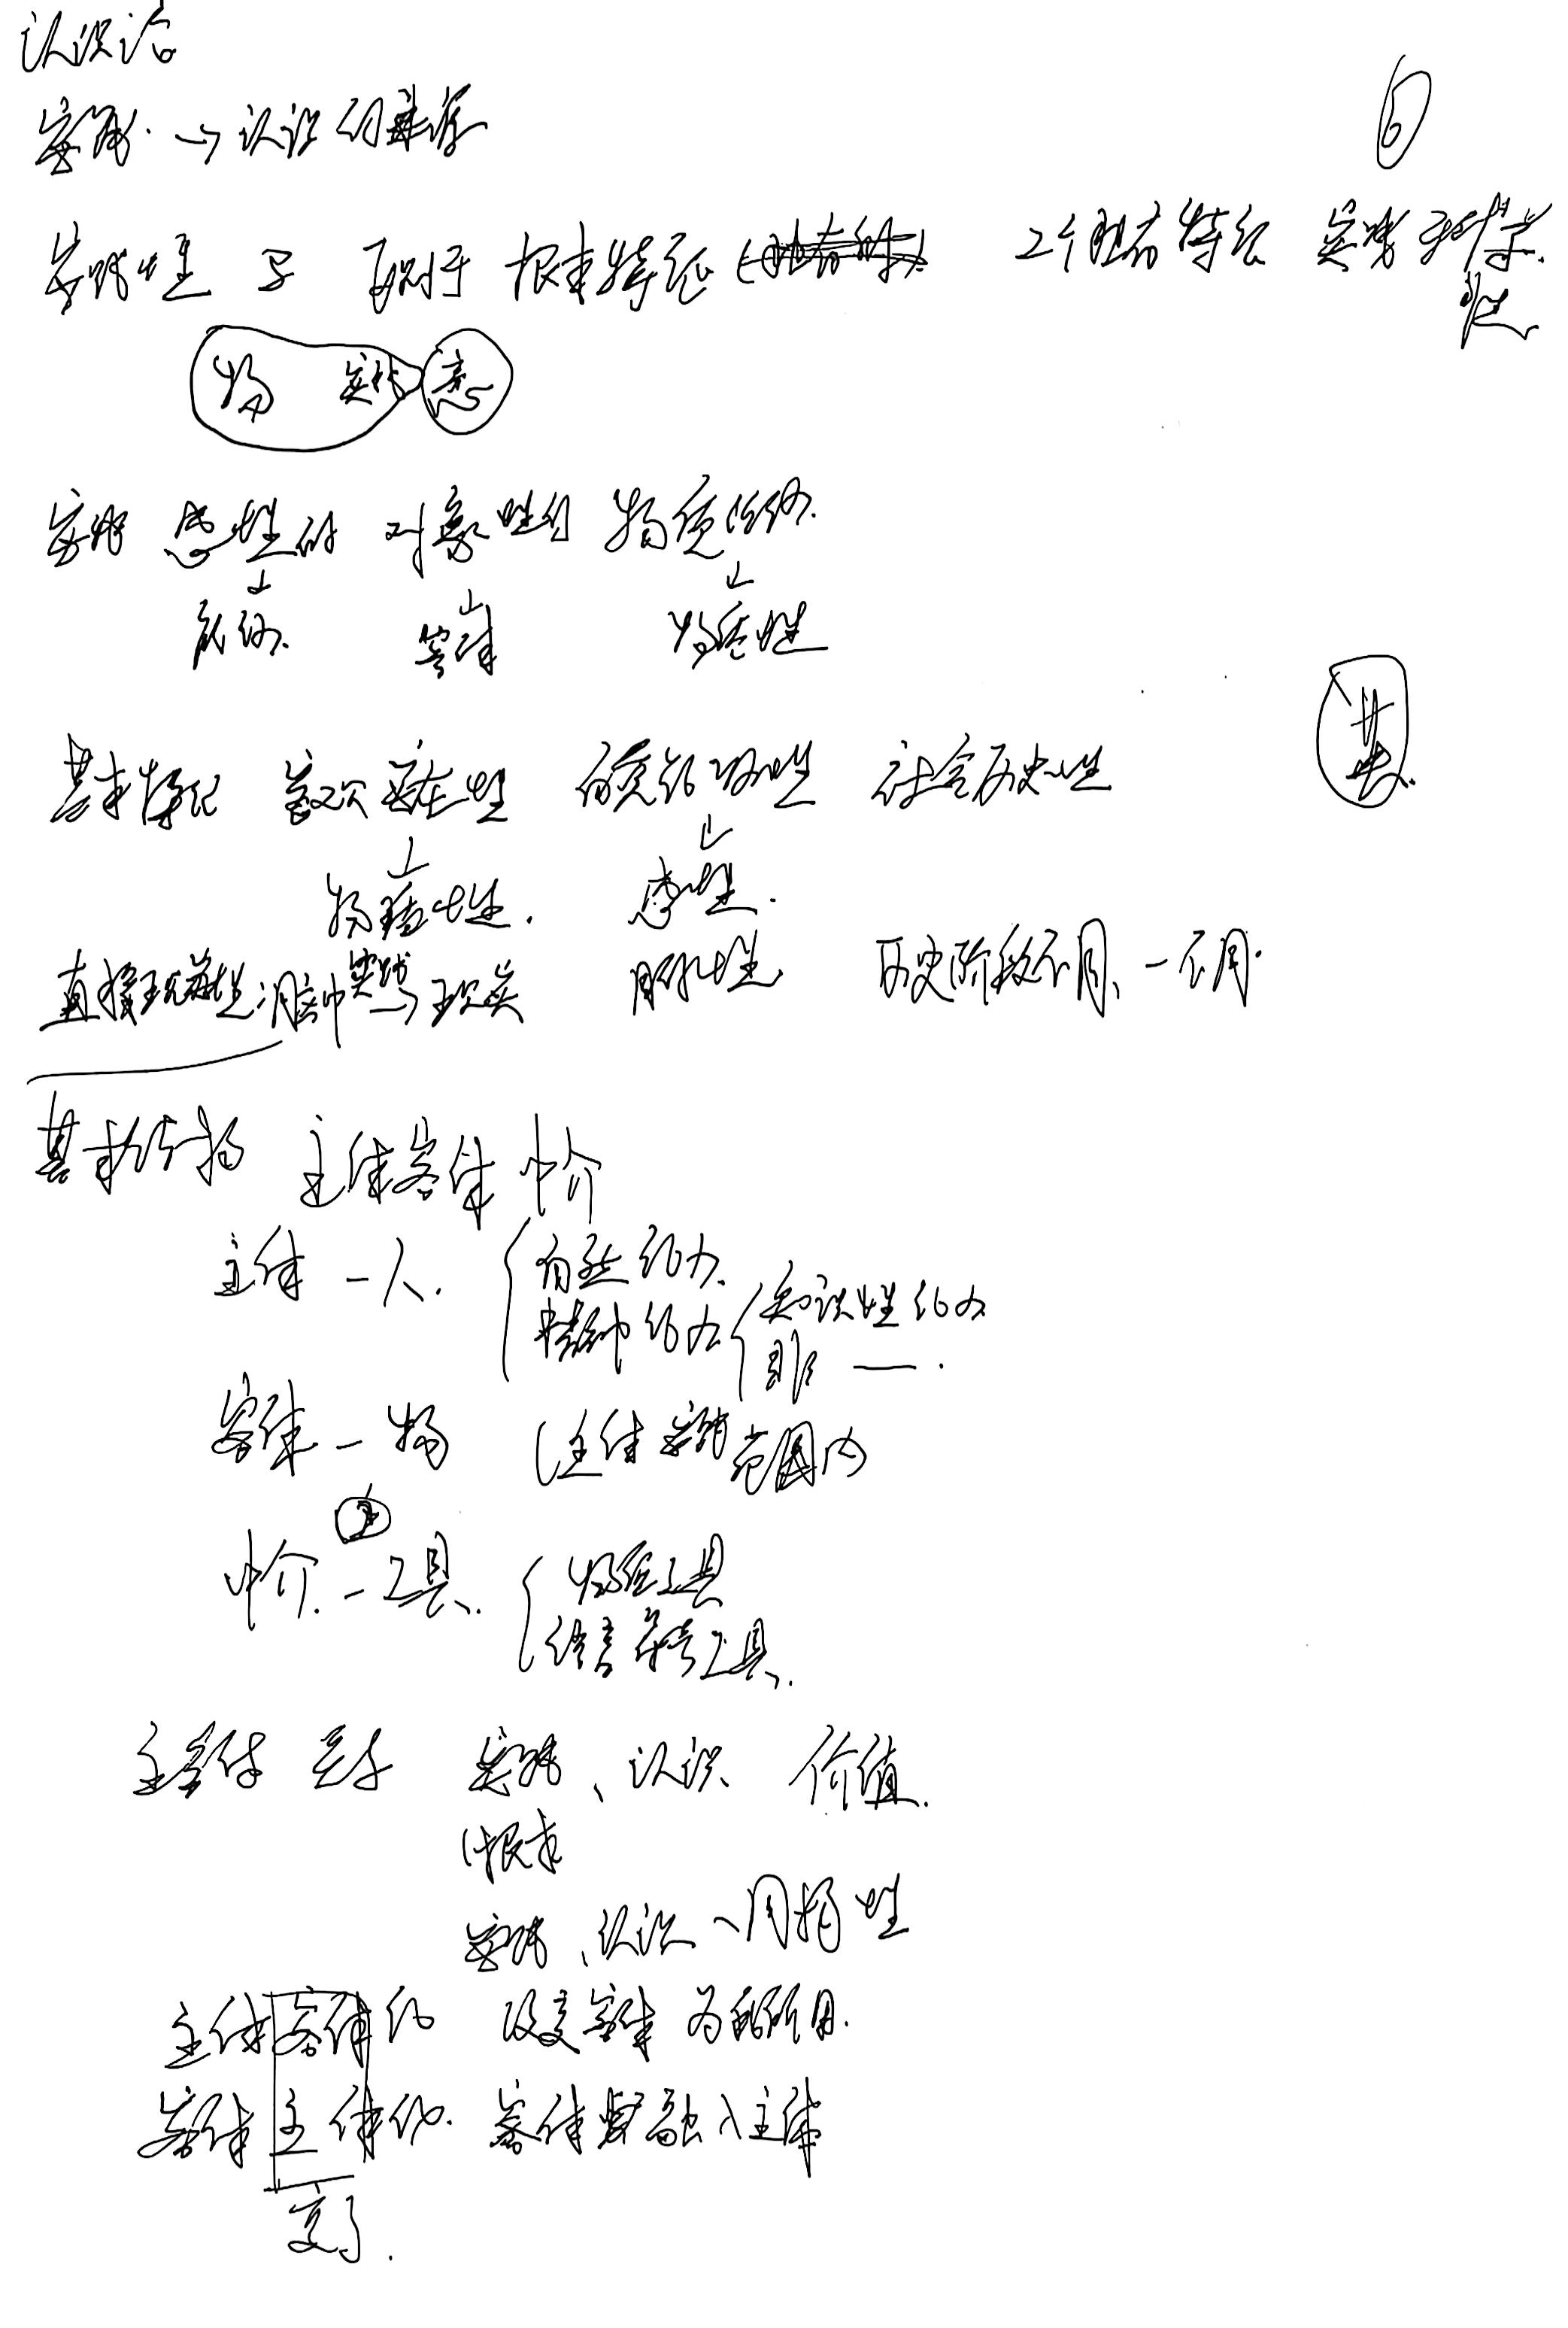 认识论
实践 → 认识的来源
实践性是 区别于 根本特征 2个固有特征 实践 科学性
物 实践 意
实践 感性的 对象性的 物质活动.
能动. 客体 物质性
基本特征 直接现实性 自觉能动性 社会历史性 其
物质性. 感性.
直接现实性:脑中 实践→ 现实 历史阶段不同、一不同.
基本结构 主体客体 中介
主体 - 人. 自然能力
精神能力 知识性能力
非 —.
客体 - 物 (主体 实践 范围内
主
中介. - 工具. 物质工具
语言符号工具.
主客体 关系 实践、认识、价值.
(根本
实践、认识、同构性
主体客体化 改变客体 为我所用.
客体主体化. 客体 融入主体
变了.